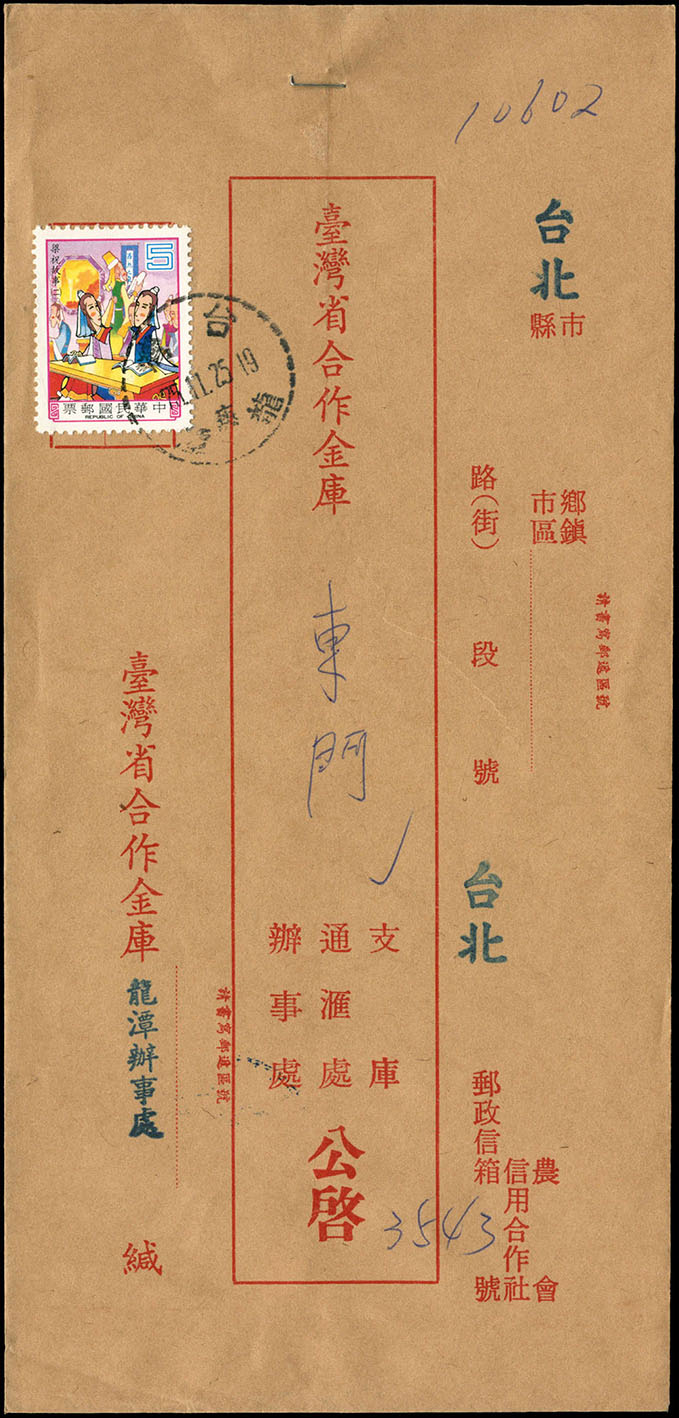 10602
台北
市
縣
鄉鎮
市區
請書寫郵遞區號
路(街) 段 號
台北
農會
信用合作社
郵政信箱 3543 號
臺灣省合作金庫
東門
支庫
通滙處
辦事處
公啓
臺灣省合作金庫
龍潭辦事處
緘
請書寫郵遞區號
5
梁祝故事
中華民國郵票
REPUBLIC OF CHINA
台
11.25 19
龍